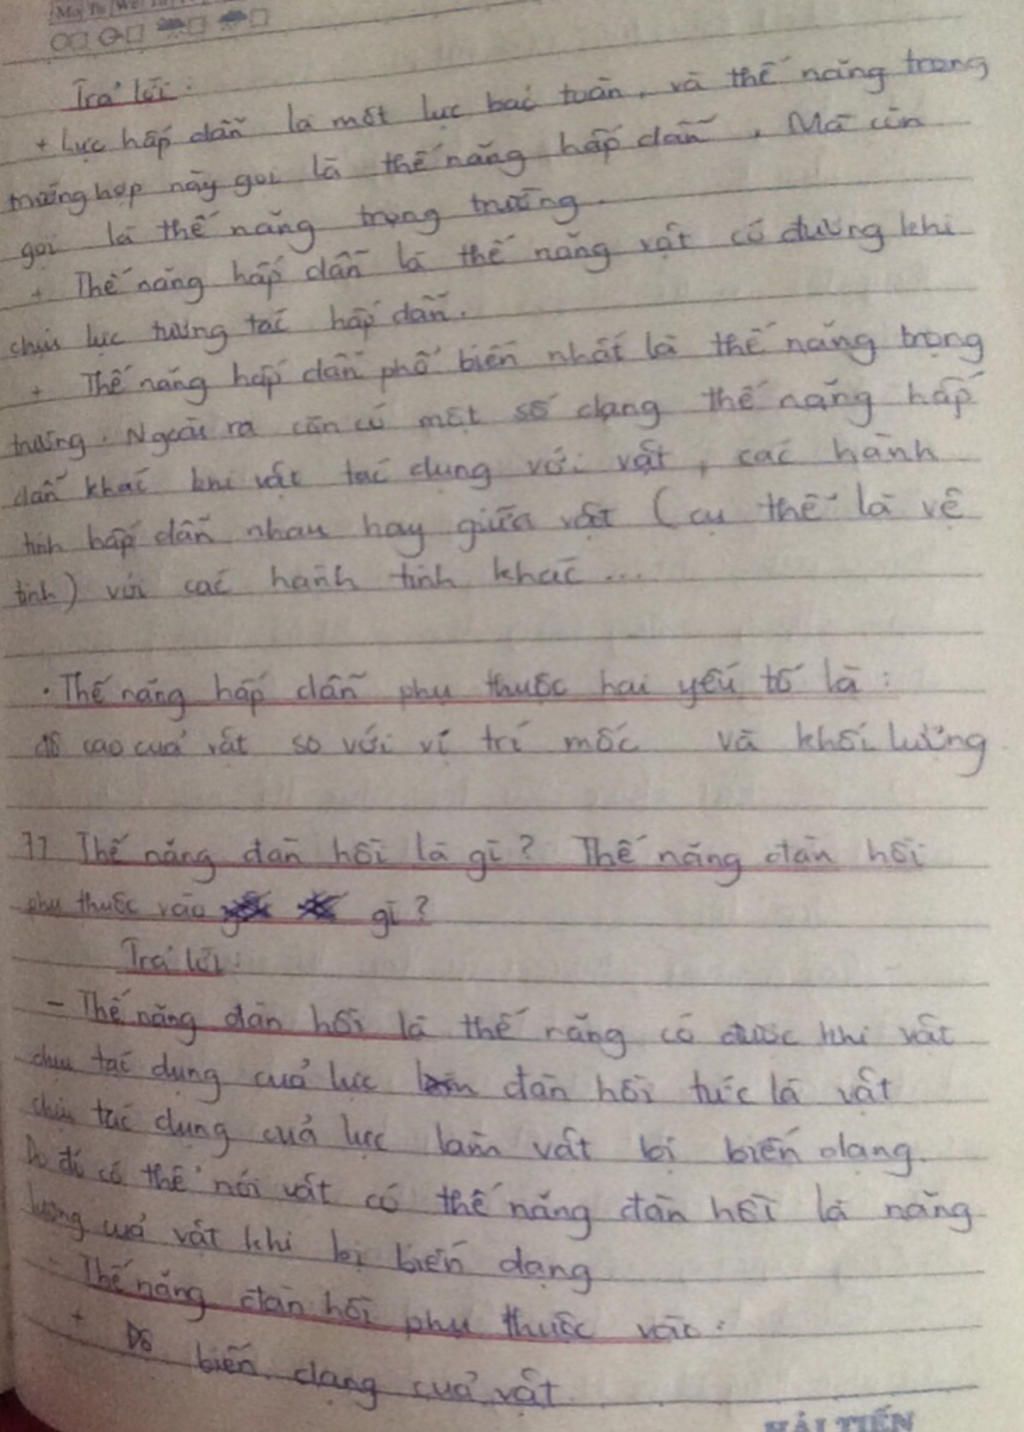 Trả lời:
+ Lực hấp dẫn là một lực bảo toàn, và thế năng trong
trường hợp này gọi là thế năng hấp dẫn. Mà còn
gọi là thế năng trọng trường.
+ Thế năng hấp dẫn là thế năng vật có đường khi
chịu lực tương tác hấp dẫn.
+ Thế năng hấp dẫn phổ biến nhất là thế năng trọng
trường. Ngoài ra còn có một số dạng thế năng hấp
dẫn khác khi vật tác dụng với vật, các hành
tinh hấp dẫn nhau hay giữa vật (cụ thể là vệ
tinh) với các hành tinh khác...
. Thế năng hấp dẫn phụ thuộc hai yếu tố là:
độ cao của vật so với vị trí mốc và khối lượng
?? Thế năng đàn hồi là gì? Thế năng đàn hồi
phụ thuộc vào gì?
Trả lời:
- Thế năng đàn hồi là thế năng có được khi vật
chịu tác dụng của lực đàn hồi tức là vật
chịu tác dụng của lực làm vật bị biến dạng.
Do đó có thể nói vật có thế năng đàn hồi là năng
lượng của vật khi bị biến dạng
- Thế năng đàn hồi phụ thuộc vào:
+ Độ biến dạng của vật.
HẢI TIẾN